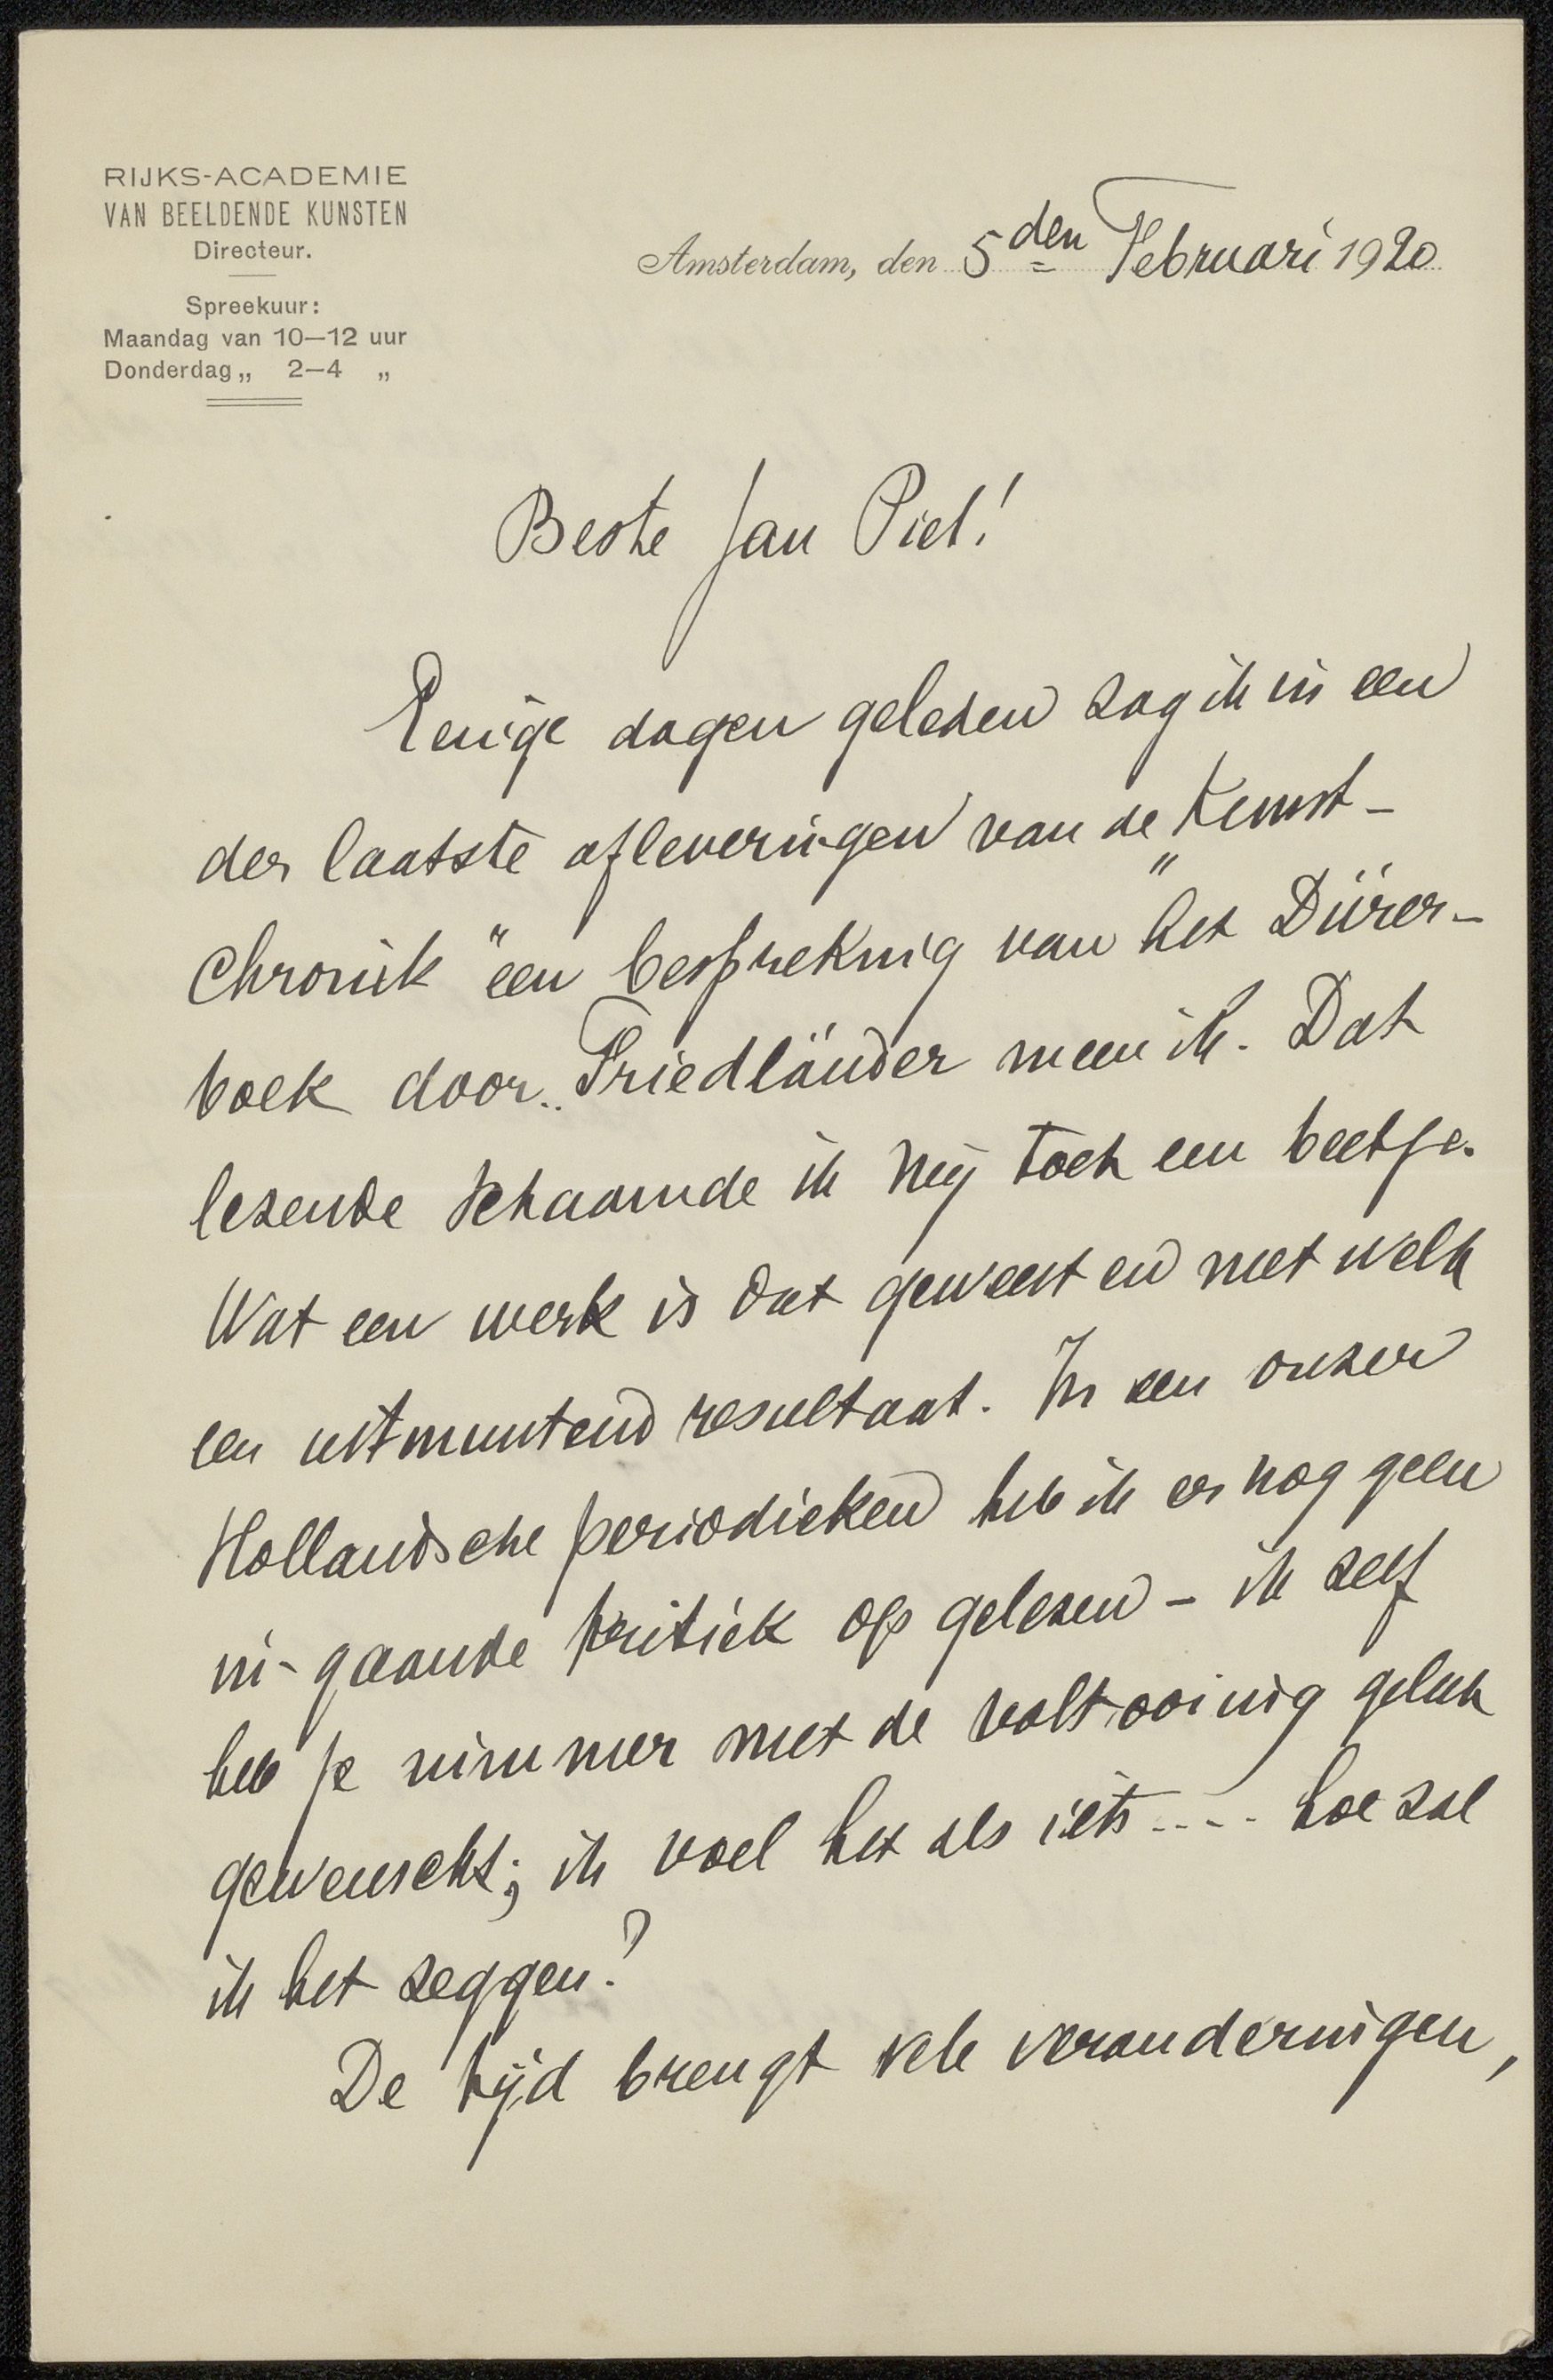 RIJKS-ACADEMIE
VAN BEELDENDE KUNSTEN
Directeur.
Spreekuur:
Maandag van 10—12 uur
Donderdag „ 2—4 „
Amsterdam, den 5den Februari 1920
Beste Jan Piet!
Eenige dagen geleden zag ik in een
der laatste afleveringen van de „Kunst-
chronik" een bespreking van het Dürer-
boek door.. Friedländer meen ik. Dat
lezende schaamde ik mij toch een beetje.
Wat een werk is dat geweest en met welk
een uitmuntend resultaat. In een onzer
Hollandsche periodieken heb ik er nog geen
in-gaande kritiek op gelezen – ik zelf
heb je nimmer met de voltooiing geluk
gewenscht; ik voel het als iets .... hoe zal
ik het zeggen?
De tijd brengt vele veranderingen,